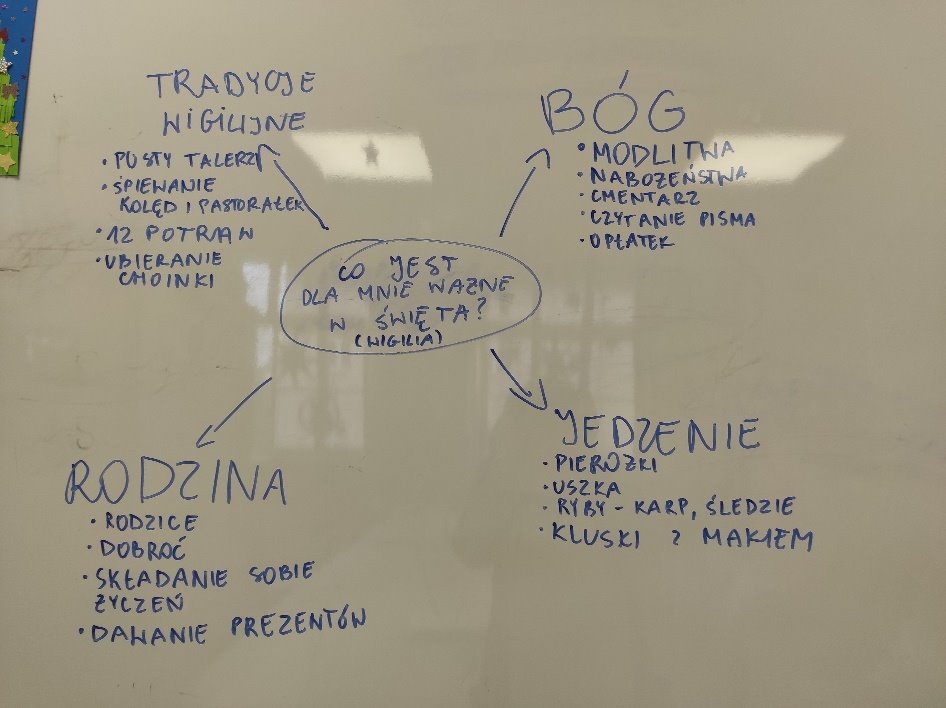 TRADYCJE
WIGILIJNE
• PUSTY TALERZ
• ŚPIEWANIE
KOLĘD I PASTORAŁEK
• 12 POTRAW
• UBIERANIE
CHOINKI
BÓG
• MODLITWA
• NABOŻEŃSTWA
• CMENTARZ
• CZYTANIE PISMA
• OPŁATEK
CO JEST
DLA MNIE WAŻNE
W ŚWIĘTA?
(WIGILIA)
RODZINA
• RODZICE
• DOBROĆ
• SKŁADANIE SOBIE
ŻYCZEŃ
• DAWANIE PREZENTÓW
JEDZENIE
• PIEROŻKI
• USZKA
• RYBY - KARP, ŚLEDZIE
• KLUSKI Z MAKIEM